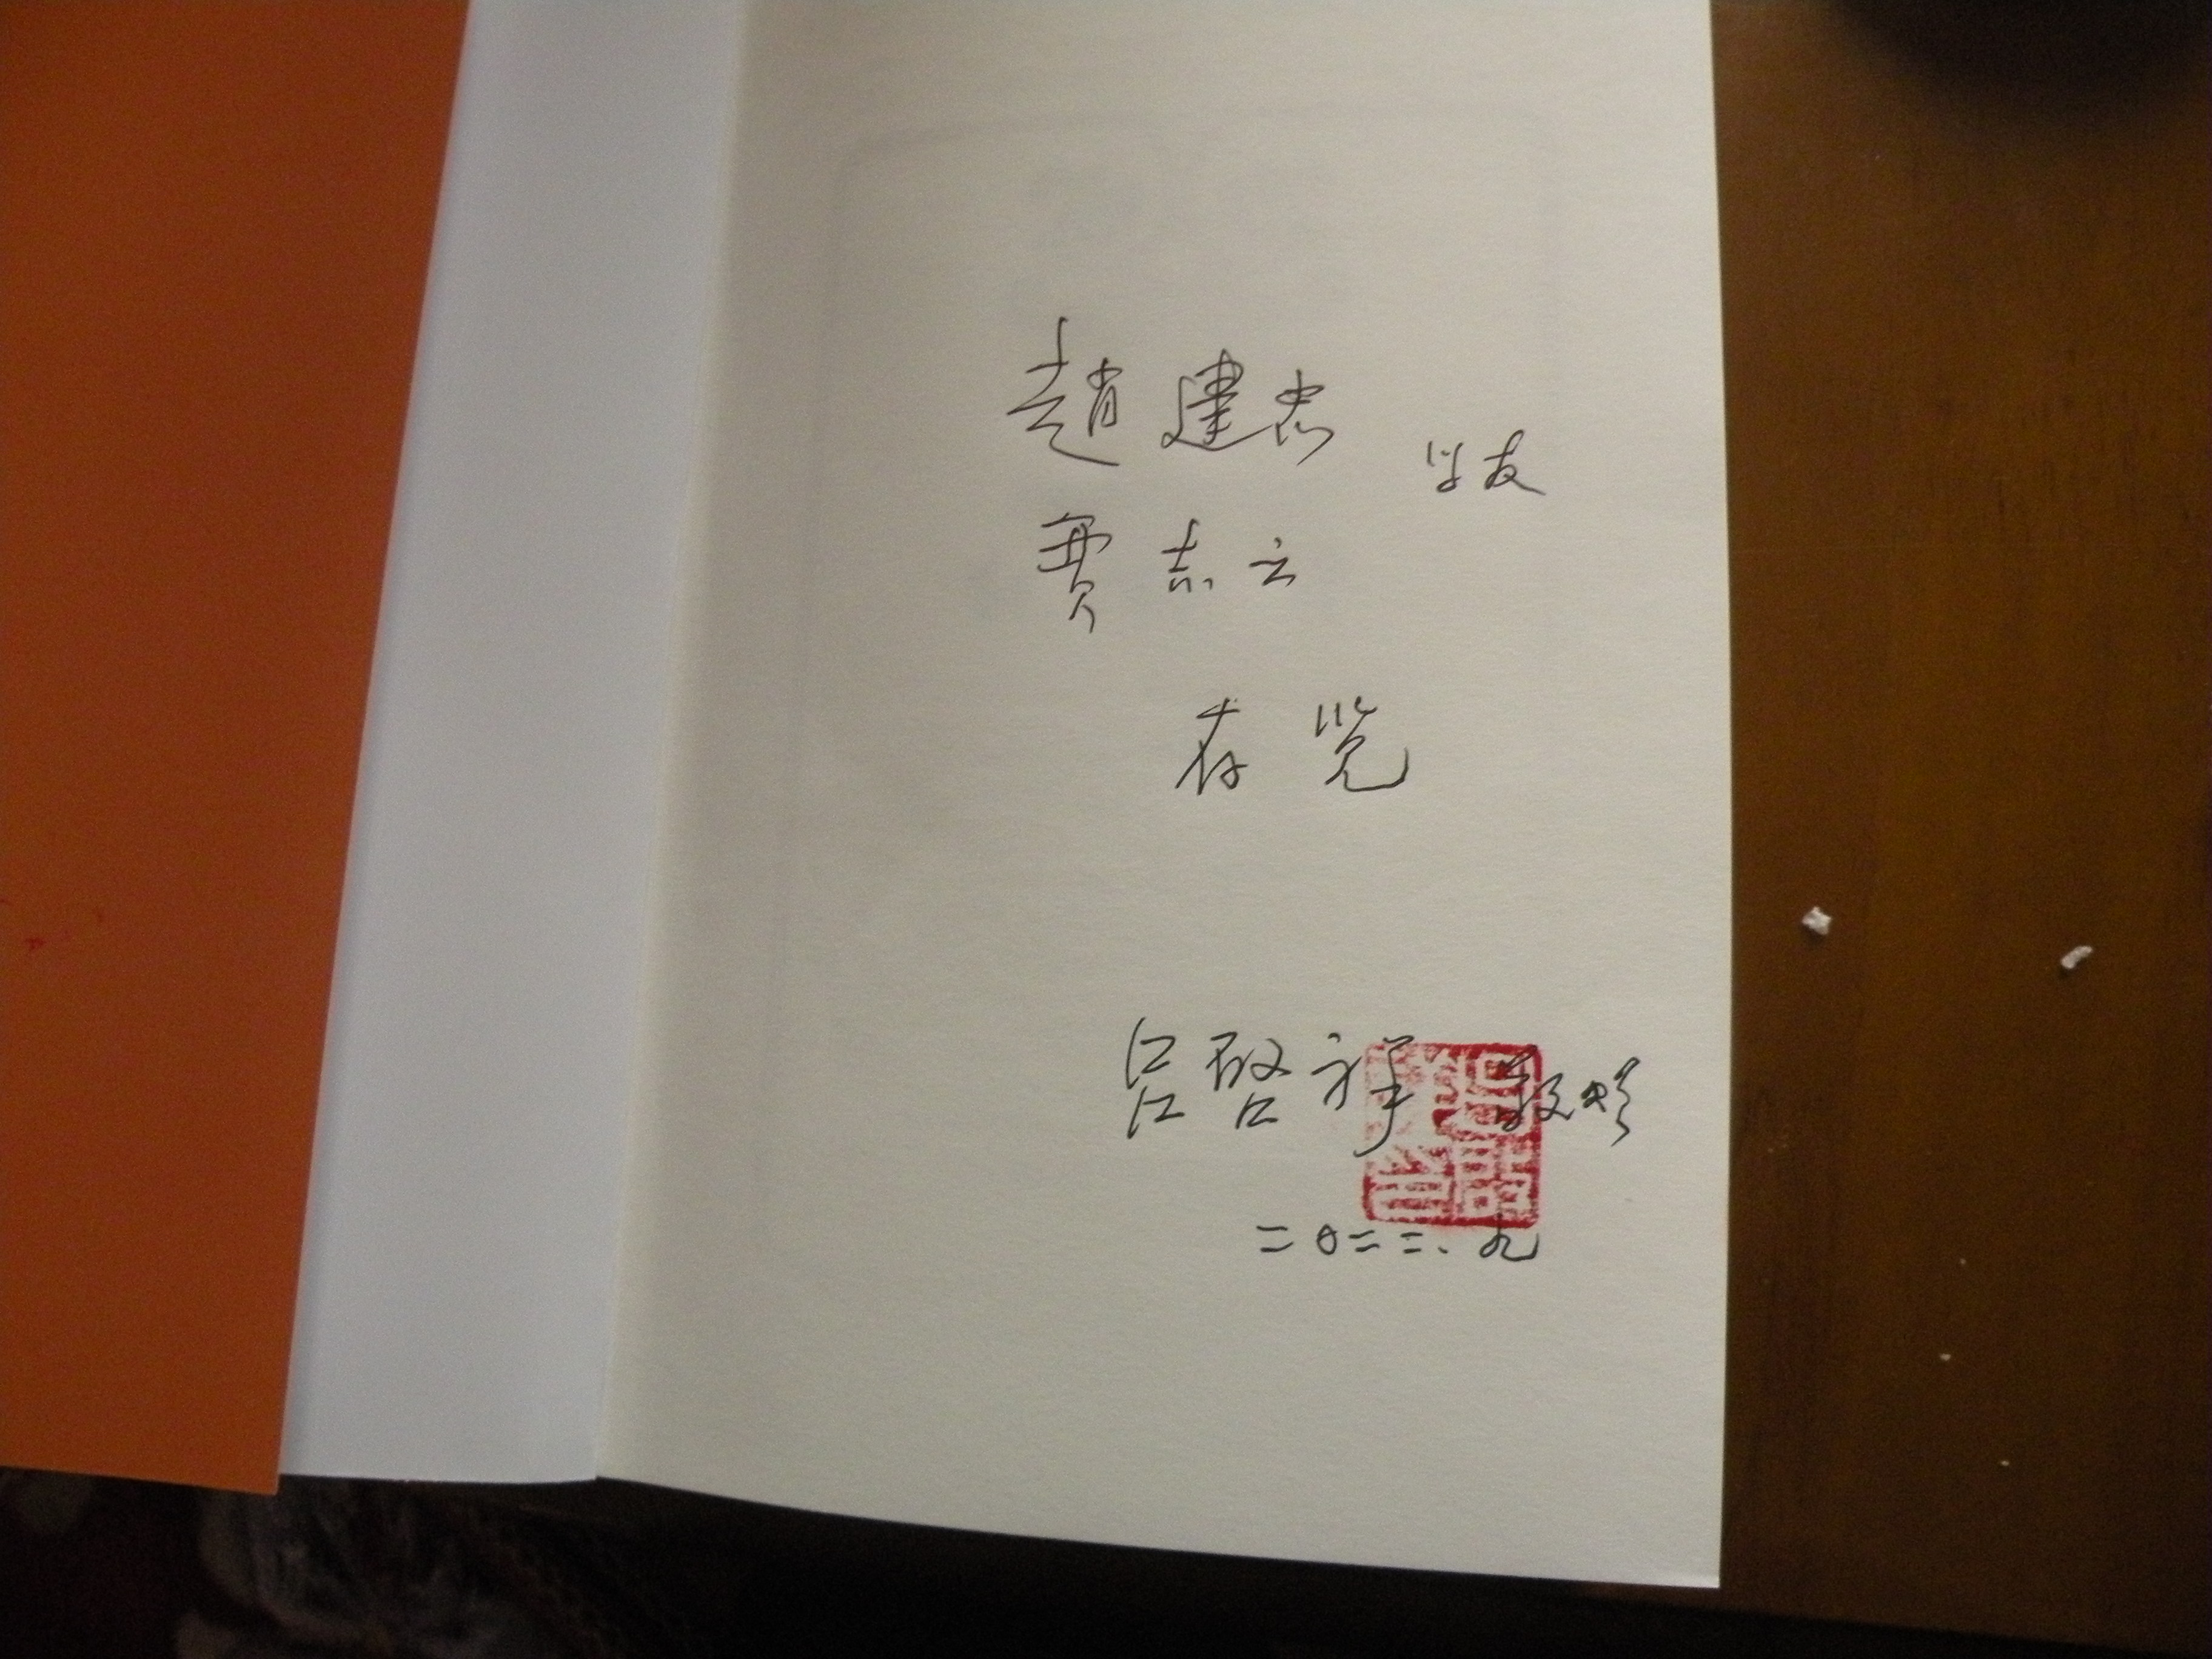 趙建忠
学友
贾志云
存览
吕启祥 敬贻
二〇二二.九